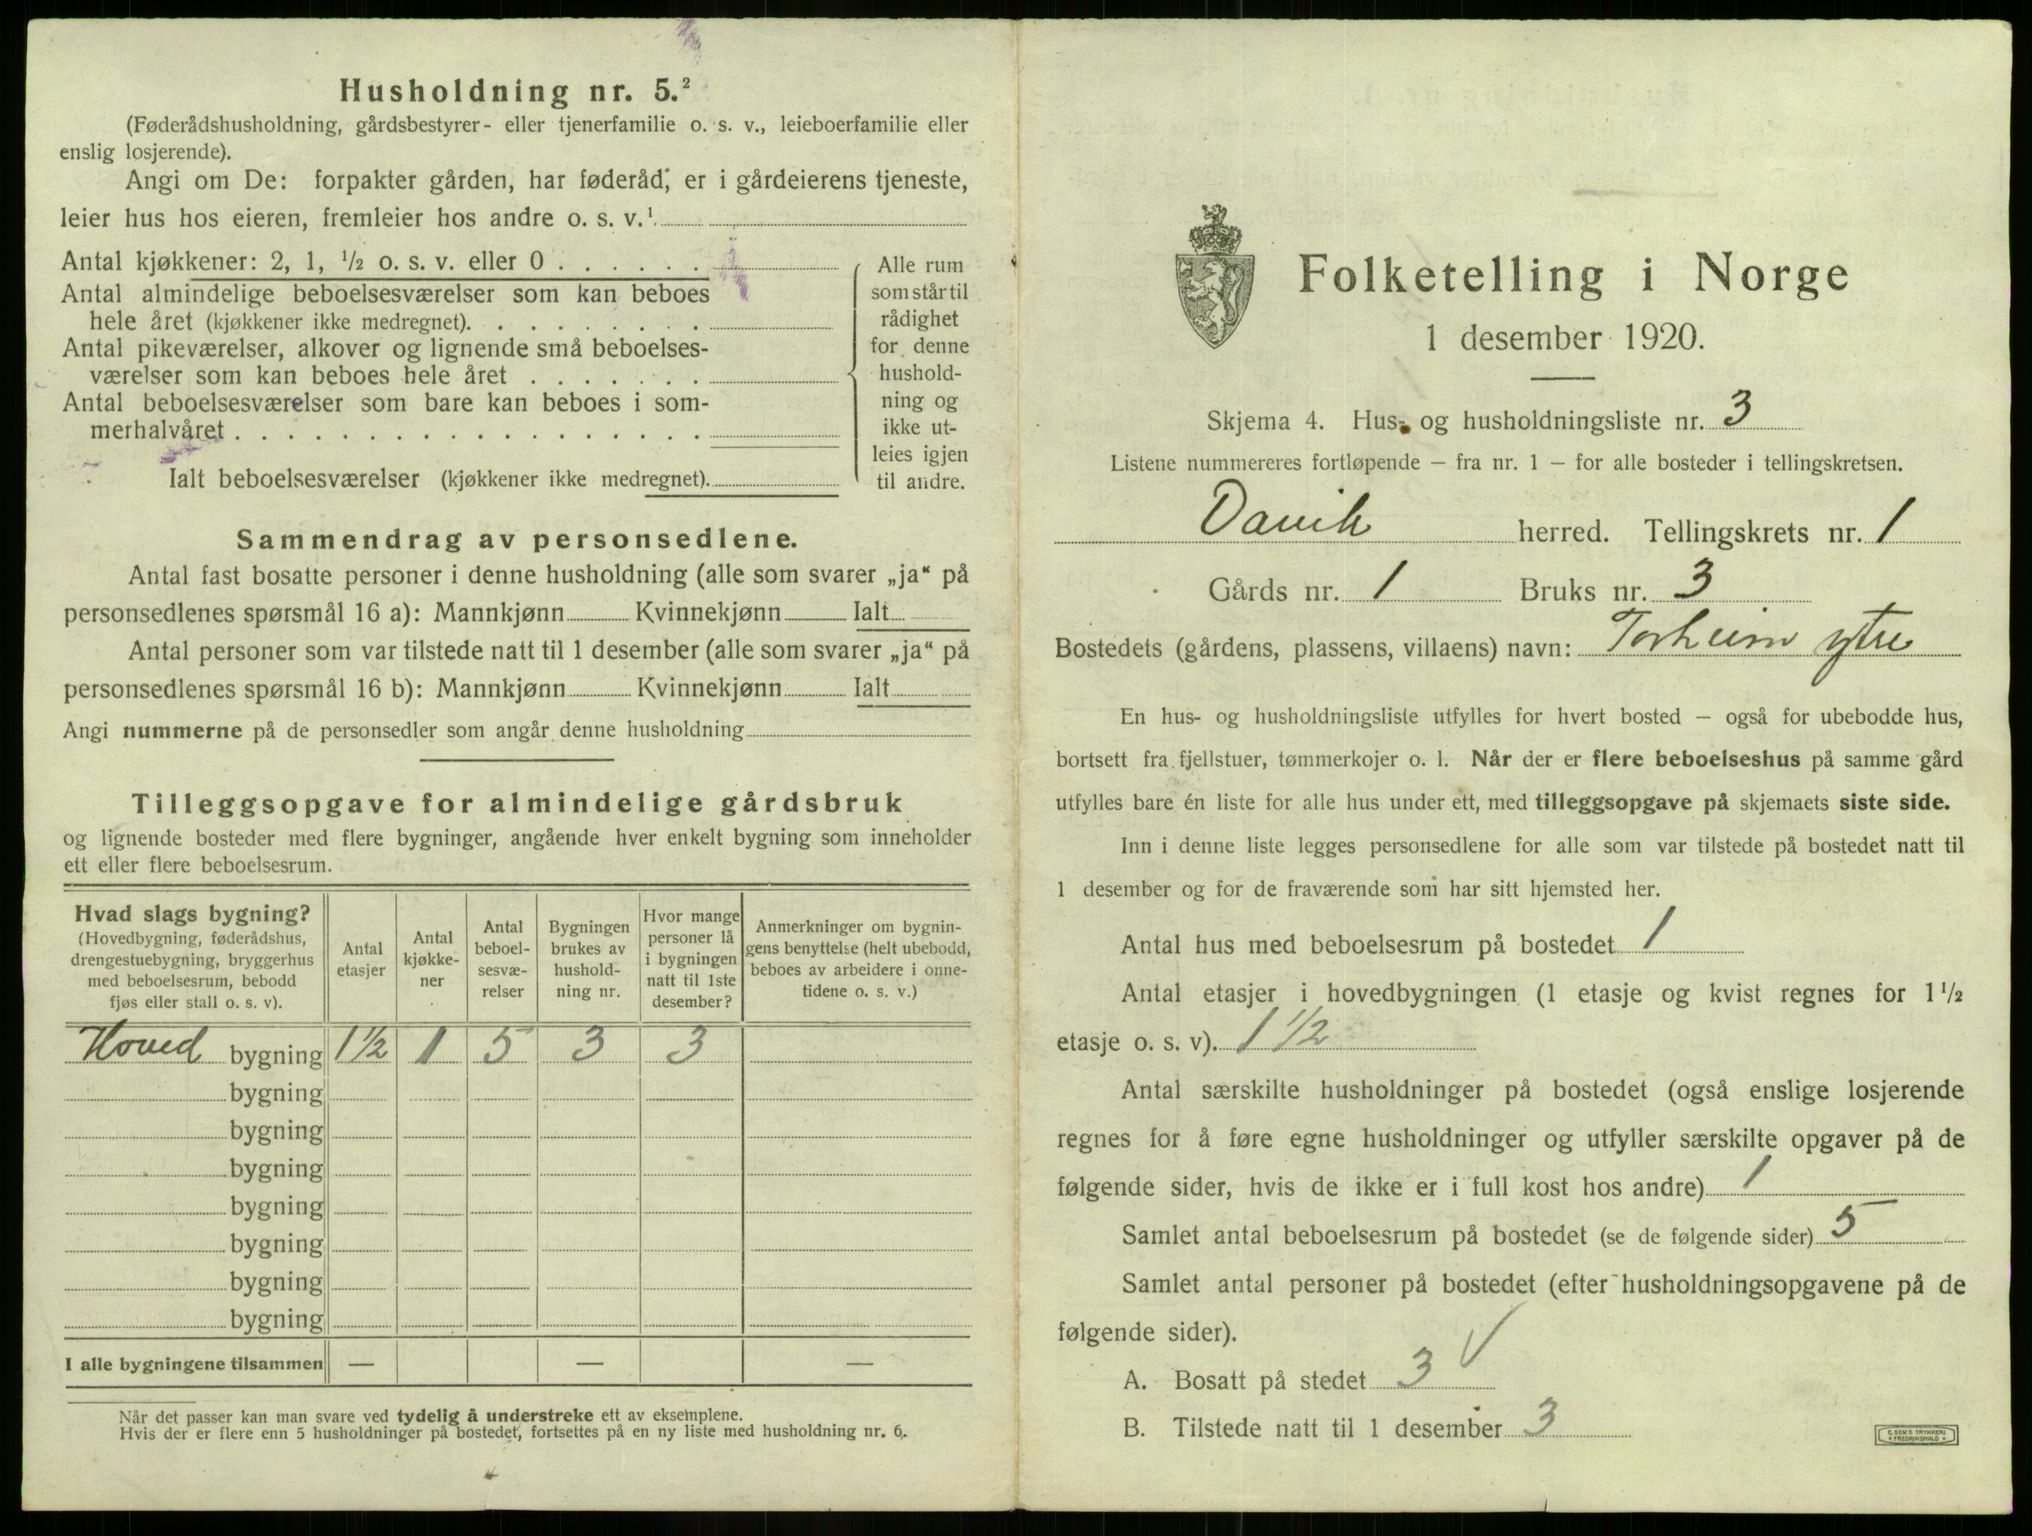 Husholdning nr. 5.²
(Føderådshusholdning, gårdsbestyrer- eller tjenerfamilie o. s. v., leieboerfamilie eller
enslig losjerende).
Angi om De: forpakter gården, har føderåd, er i gårdeierens tjeneste,
leier hus hos eieren, fremleier hos andre o. s. v.¹
Antal kjøkkener: 2, 1, ½ o. s. v. eller 0 . . . . . .
Antal almindelige beboelsesværelser som kan beboes
hele året (kjøkkener ikke medregnet). . . . . . . . .
Antal pikeværelser, alkover og lignende små beboelses-
værelser som kan beboes hele året . . . . . . .
Antal beboelsesværelser som bare kan beboes i som-
merhalvåret . . . . . . . . . . . . . . . . . .
Ialt beboelsesværelser (kjøkkener ikke medregnet).
Alle rum
som står til
rådighet
for denne
hushold-
ning og
ikke ut-
leies igjen
til andre.
Sammendrag av personsedlene.
Antal fast bosatte personer i denne husholdning (alle som svarer „ja“ på
personsedlenes spørsmål 16 a): Mannkjønn Kvinnekjønn Ialt
Antal personer som var tilstede natt til 1 desember (alle som svarer „ja“ på
personsedlenes spørsmål 16 b): Mannkjønn Kvinnekjønn Ialt
Angi nummerne på de personsedler som angår denne husholdning
Tilleggsopgave for almindelige gårdsbruk
og lignende bosteder med flere bygninger, angående hver enkelt bygning som inneholder
ett eller flere beboelsesrum.
Hvad slags bygning?
(Hovedbygning, føderådshus,
drengestuebygning, bryggerhus
med beboelsesrum, bebodd
fjøs eller stall o. s. v).
Antal
etasjer
Antal
kjøkke-
ner
Antal
beboel-
sesvæ-
relser
Bygningen
brukes av
hushold-
ning nr.
Hvor mange
personer lå
i bygningen
natt til 1ste
desember?
Anmerkninger om bygnin-
gens benyttelse (helt ubebodd,
beboes av arbeidere i onne-
tidene o. s. v.)
Hoved bygning 1½ 1 5 3 3
bygning
bygning
bygning
bygning
bygning
bygning
bygning
I alle bygningene tilsammen — — —
Når det passer kan man svare ved tydelig å understreke ett av eksemplene.
Hvis der er flere enn 5 husholdninger på bostedet, fortsettes på en ny liste med husholdning nr. 6.
Folketelling i Norge
1 desember 1920.
Skjema 4. Hus- og husholdningsliste nr. 3
Listene nummereres fortløpende — fra nr. 1 — for alle bosteder i tellingskretsen.
Davik herred. Tellingskrets nr. 1
Gårds nr. 1 Bruks nr. 3
Bostedets (gårdens, plassens, villaens) navn: Torheim ytre
En hus- og husholdningsliste utfylles for hvert bosted — også for ubebodde hus,
bortsett fra fjellstuer, tømmerkojer o. l. Når der er flere beboelseshus på samme gård
utfylles bare én liste for alle hus under ett, med tilleggsopgave på skjemaets siste side.
Inn i denne liste legges personsedlene for alle som var tilstede på bostedet natt til
1 desember og for de fraværende som har sitt hjemsted her.
Antal hus med beboelsesrum på bostedet 1
Antal etasjer i hovedbygningen (1 etasje og kvist regnes for 1½
etasje o. s. v). 1½
Antal særskilte husholdninger på bostedet (også enslige losjerende
regnes for å føre egne husholdninger og utfyller særskilte opgaver på de
følgende sider, hvis de ikke er i full kost hos andre) 1
Samlet antal beboelsesrum på bostedet (se de følgende sider) 5
Samlet antal personer på bostedet (efter husholdningsopgavene på de
følgende sider).
A. Bosatt på stedet 3
B. Tilstede natt til 1 desember 3
E. SEM'S TRYKKERI
FREDRIKSHALD